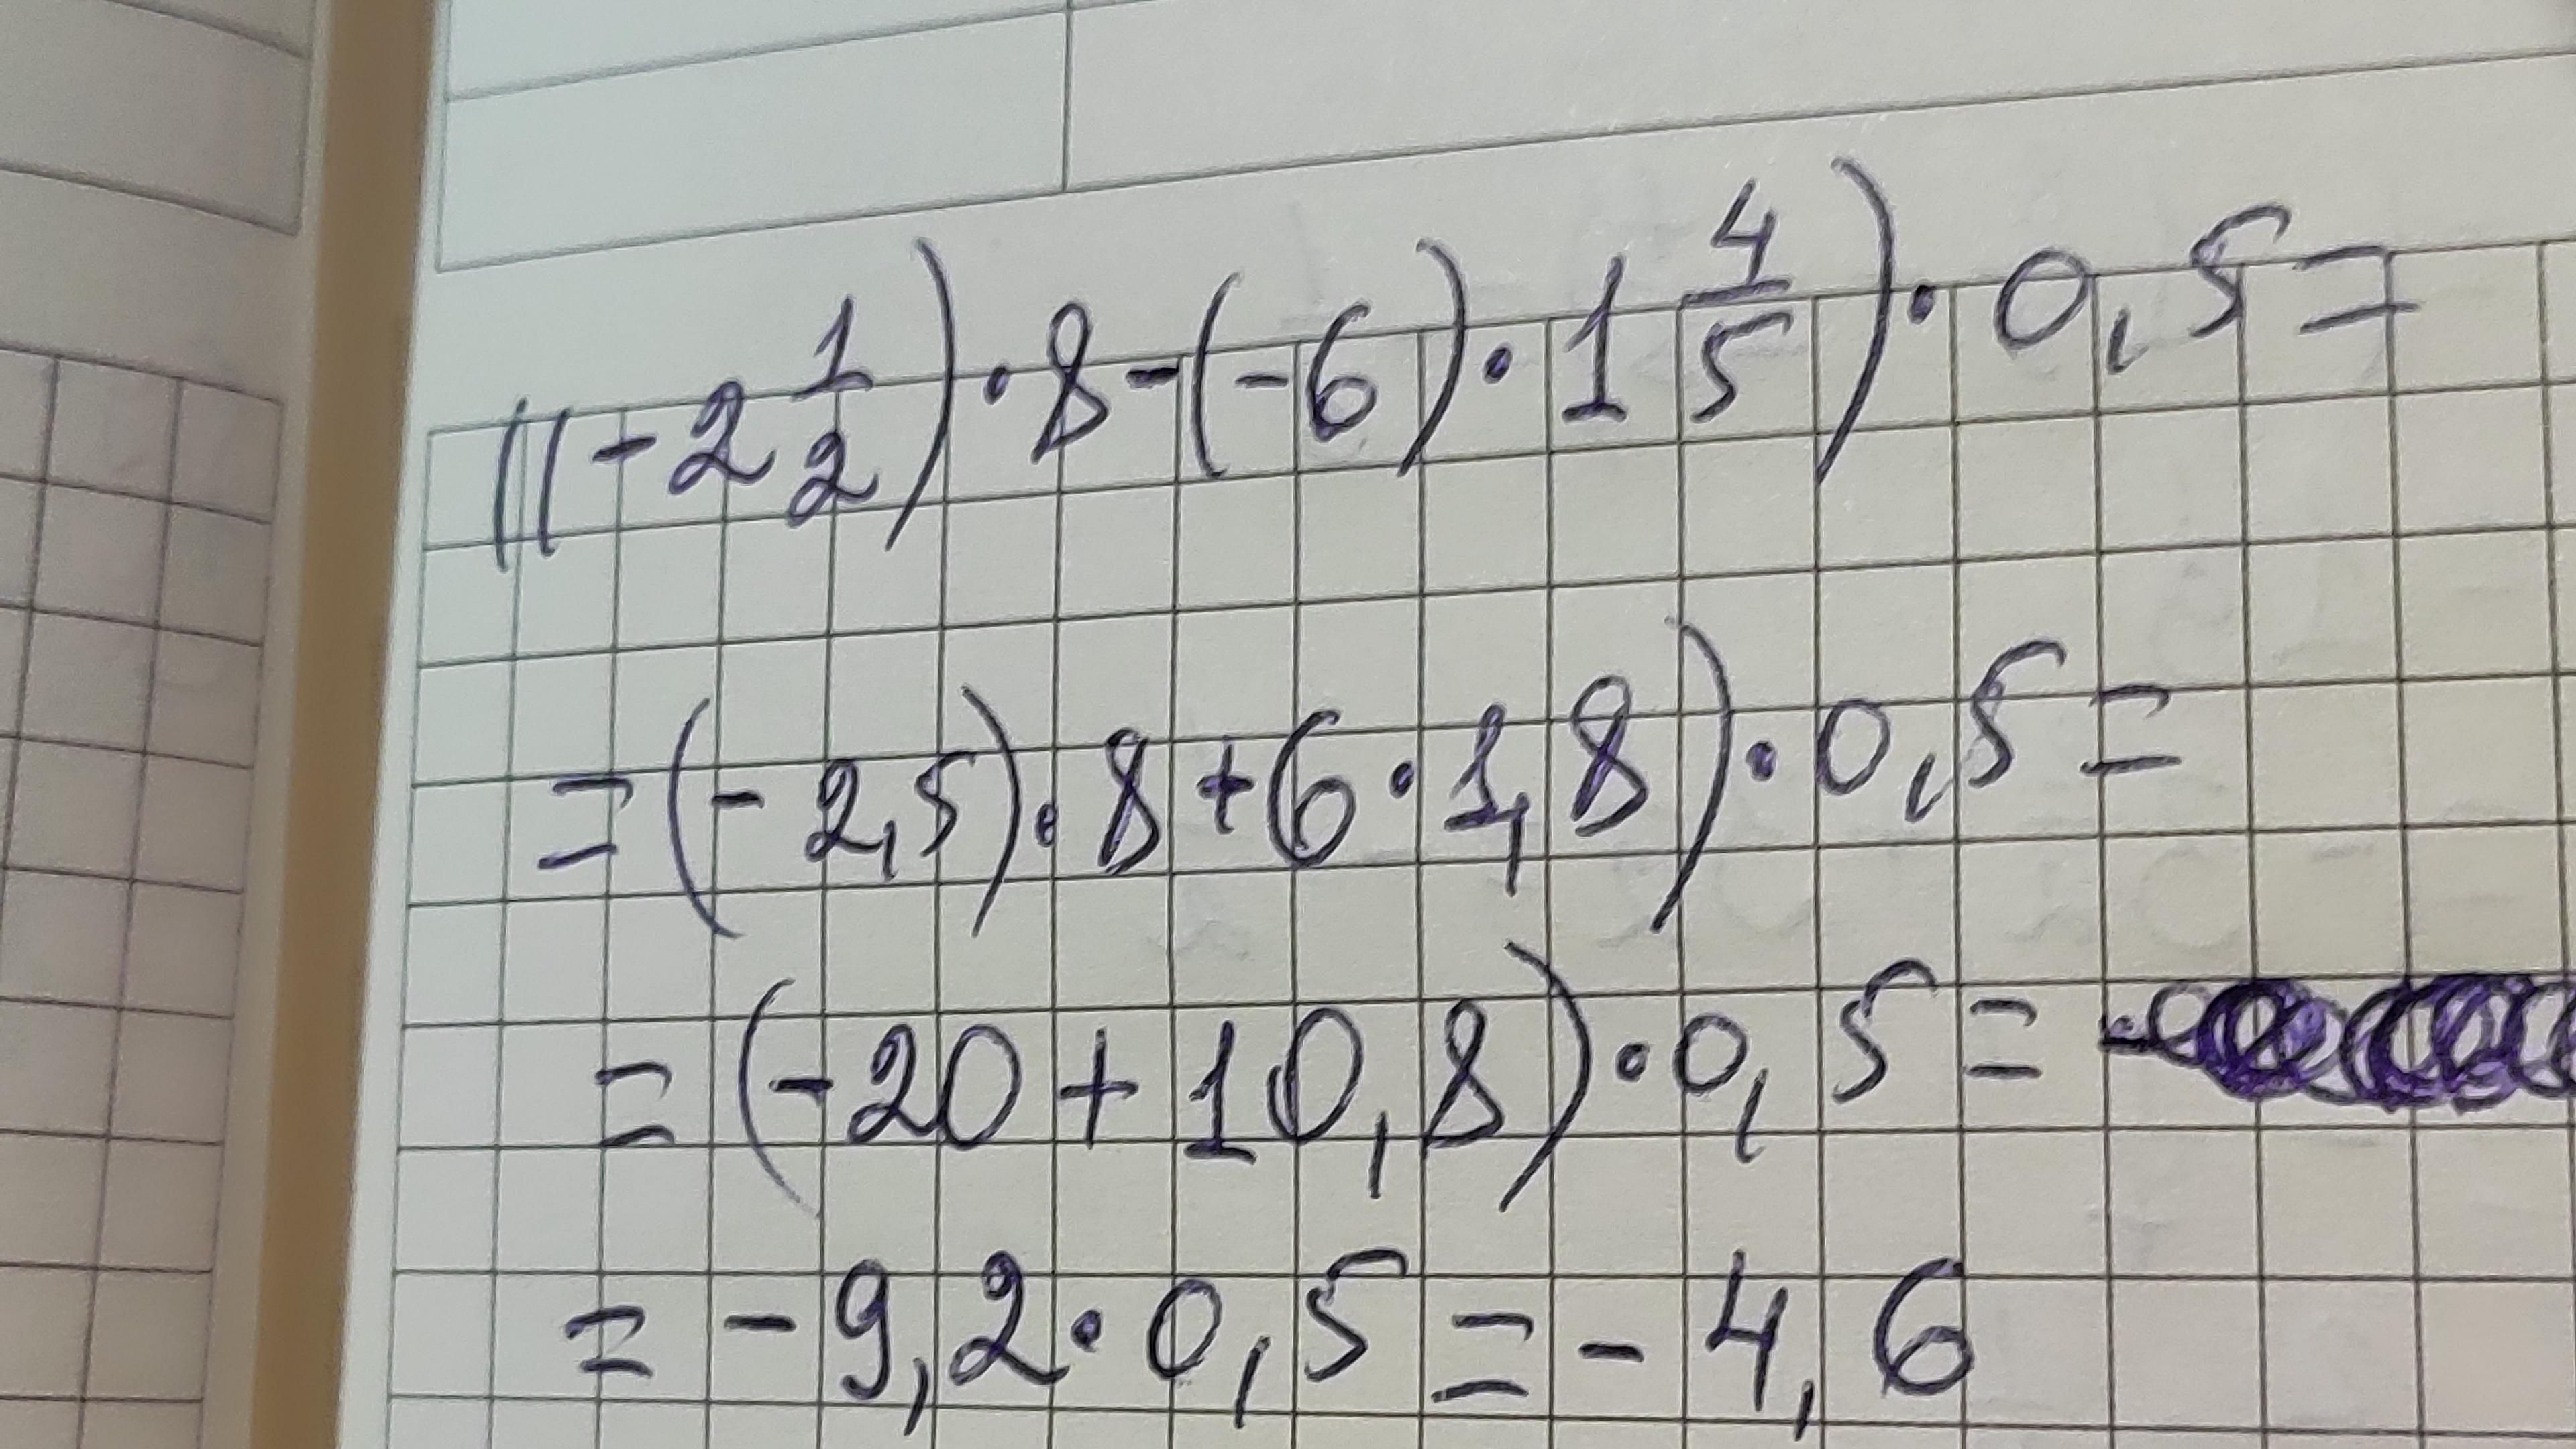 ((-2 1/2)·8-(-6)·1 4/5)·0,5=
=(-2,5)·8+6·1,8)·0,5=
=(-20+10,8)·0,5=-
=-9,2·0,5=-4,6